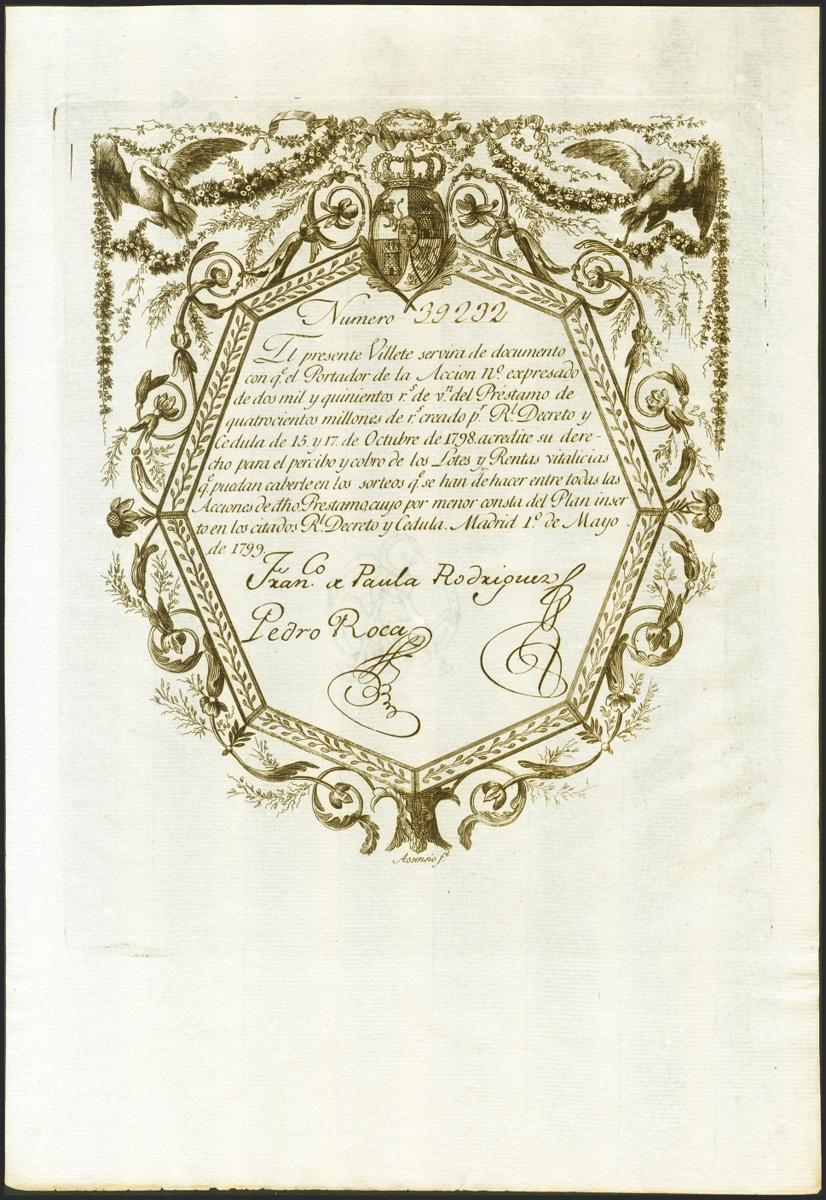 Numero 39292
El presente Villete servira de documento
con q.e el Portador de la Accion n.o expresado
de dos mil y quinientos r.s de v.n del Préstamo de
quatrocientos millones de r.s creado p.r R.l Decreto y
Cedula de 15. y 17. de Octubre de 1798. acredite su dere-
cho para el percibo y cobro de los Lotes y Rentas vitalicias
q.e puedan caberle en los sorteos q.e se han de hacer entre todas las
Acciones de dho. Prestamo, cuyo por menor consta del Plan inser
to en los citados R.l Decreto y Cedula. Madrid 1.o de Mayo
de 1799.
Fran.co de Paula Rodriguez
Pedro Roca
Assensio f.t